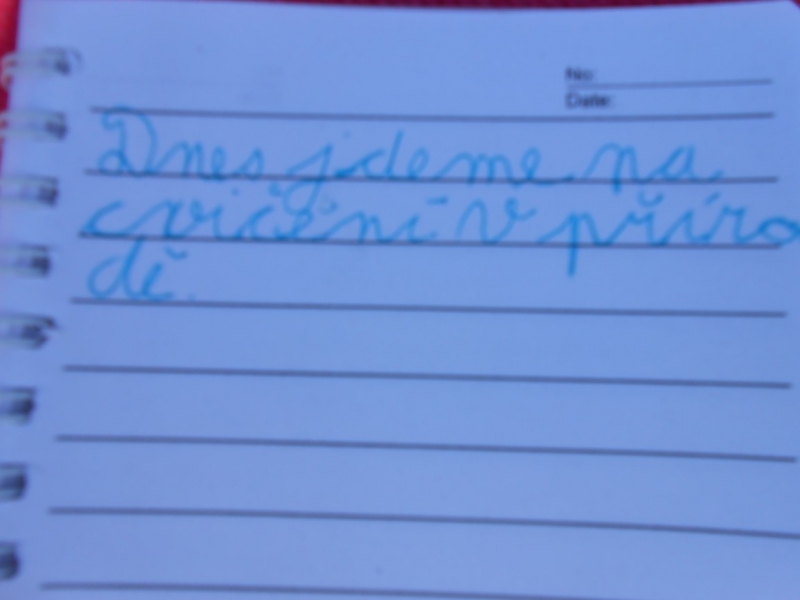 No:
Date:
Dnes jdeme na
cvičení v příro
dě.